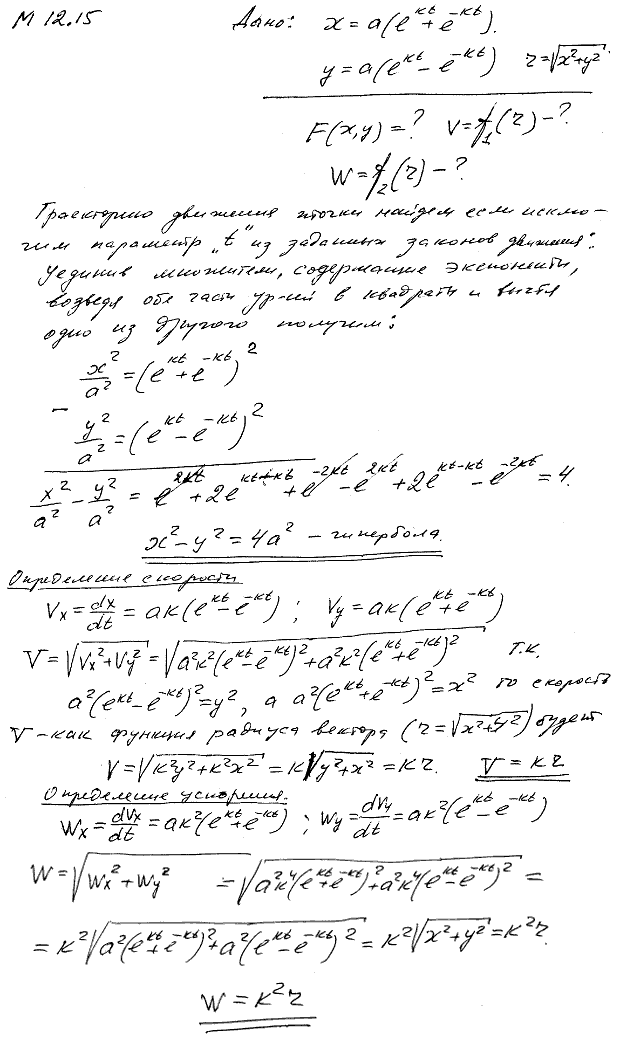 М 12.15 Дано: x = a(e^{kt} + e^{-kt}).
y = a(e^{kt} - e^{-kt}) r = √(x² + y²).
F(x,y) = ? V = f₁(r) - ?
W = f₂(r) - ?
Траекторию движения точки найдем если исклю-
чим параметр „t" из заданных законов движения:
Уединив множители, содержащие экспоненты,
возведя обе части ур-ий в квадраты и вычтя
одно из другого получим:
x²/a² = (e^{kt} + e^{-kt})²
–
y²/a² = (e^{kt} - e^{-kt})²
x²/a² - y²/a² = e^{2kt} + 2e^{kt-kt} + e^{-2kt} - e^{2kt} + 2e^{kt-kt} - e^{-2kt} = 4.
x² - y² = 4a² – гипербола.
Определение скорости
Vx = dx/dt = ak(e^{kt} - e^{-kt}) ; Vy = ak(e^{kt} + e^{-kt})
V = √(Vx² + Vy²) = √(a²k²(e^{kt} - e^{-kt})² + a²k²(e^{kt} + e^{-kt})²) т.к.
a²(e^{kt} - e^{-kt})² = y², а a²(e^{kt} + e^{-kt})² = x² то скорость
V – как функция радиуса вектора (r = √(x² + y²)) будет
V = √(k²y² + k²x²) = k√(y² + x²) = kr. V = kr
Определение ускорения.
Wx = dVx/dt = ak²(e^{kt} + e^{-kt}) ; Wy = dVy/dt = ak²(e^{kt} - e^{-kt})
W = √(Wx² + Wy²) = √(a²k⁴(e^{kt} + e^{-kt})² + a²k⁴(e^{kt} - e^{-kt})²) =
= k²√(a²(e^{kt} + e^{-kt})² + a²(e^{kt} - e^{-kt})²) = k²√(x² + y²) = k²r.
W = k²r